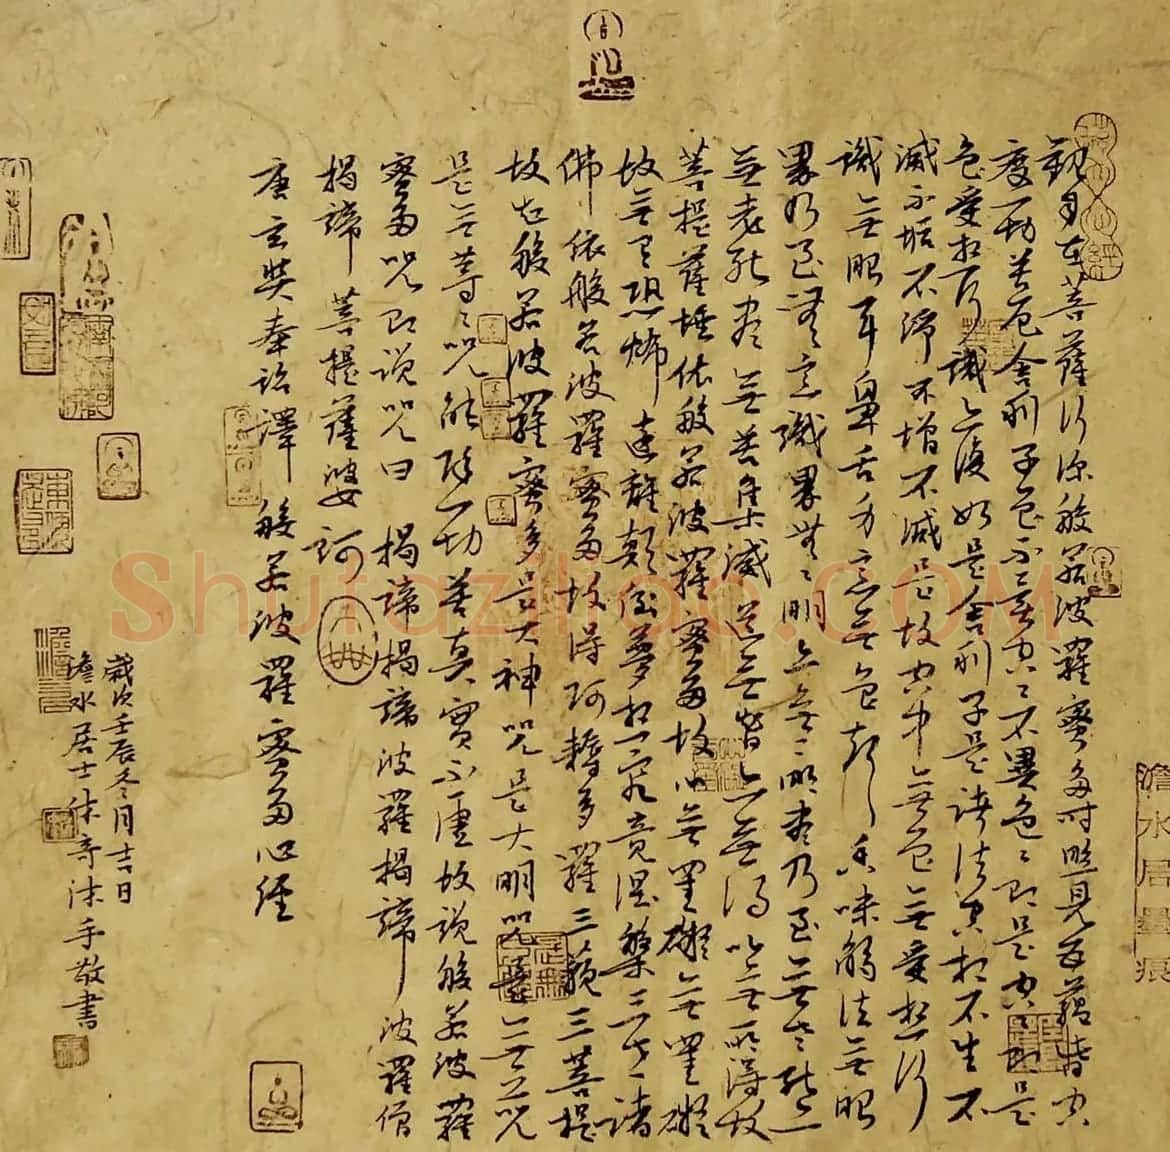 觀自在菩薩行深般若波羅蜜多時照見五蘊皆空
度一切苦厄舍利子色不異空々不異色々即是空々即是
色受想行識亦復如是舍利子是諸法空相不生不
滅不垢不淨不增不減是故空中無色無受想行
識無眼耳鼻舌身意無色聲香味觸法無眼
界乃至無意識界無々明亦無々明盡乃至無老死亦
無老死盡無苦集滅道無智亦無得以無所得故
菩提薩埵依般若波羅蜜多故心無罣礙無罣礙
故無有恐怖遠離顛倒夢想究竟涅槃三世諸
佛依般若波羅蜜多故得阿耨多羅三藐三菩提
故知般若波羅蜜多是大神咒是大明咒是無上咒
是無等々咒能除一切苦真實不虛故說般若波羅
蜜多咒即說咒曰 揭諦揭諦波羅揭諦波羅僧
揭諦 菩提薩婆訶
唐玄奘奉詔譯 般若波羅蜜多心經
歲次壬辰冬月十一日
澹水居士 沐手敬書
澹水居墨痕